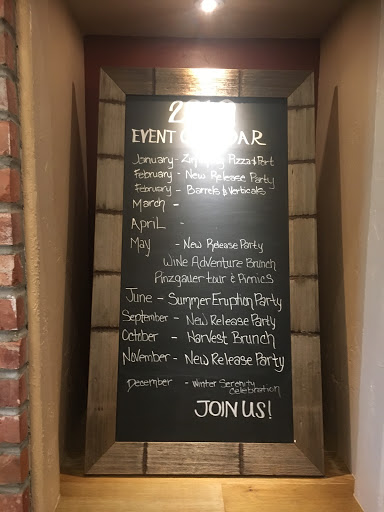 EVENT
January - Pizza & Port
February - New Release Party
February - Barrels & Verticals
March -
April -
May - New Release Party
Wine Adventure Brunch
Pinzgauer tour & Picnics
June - Summer Eruption Party
September - New Release Party
October - Harvest Brunch
November - New Release Party
December - Winter Serenity
celebration
JOIN US!